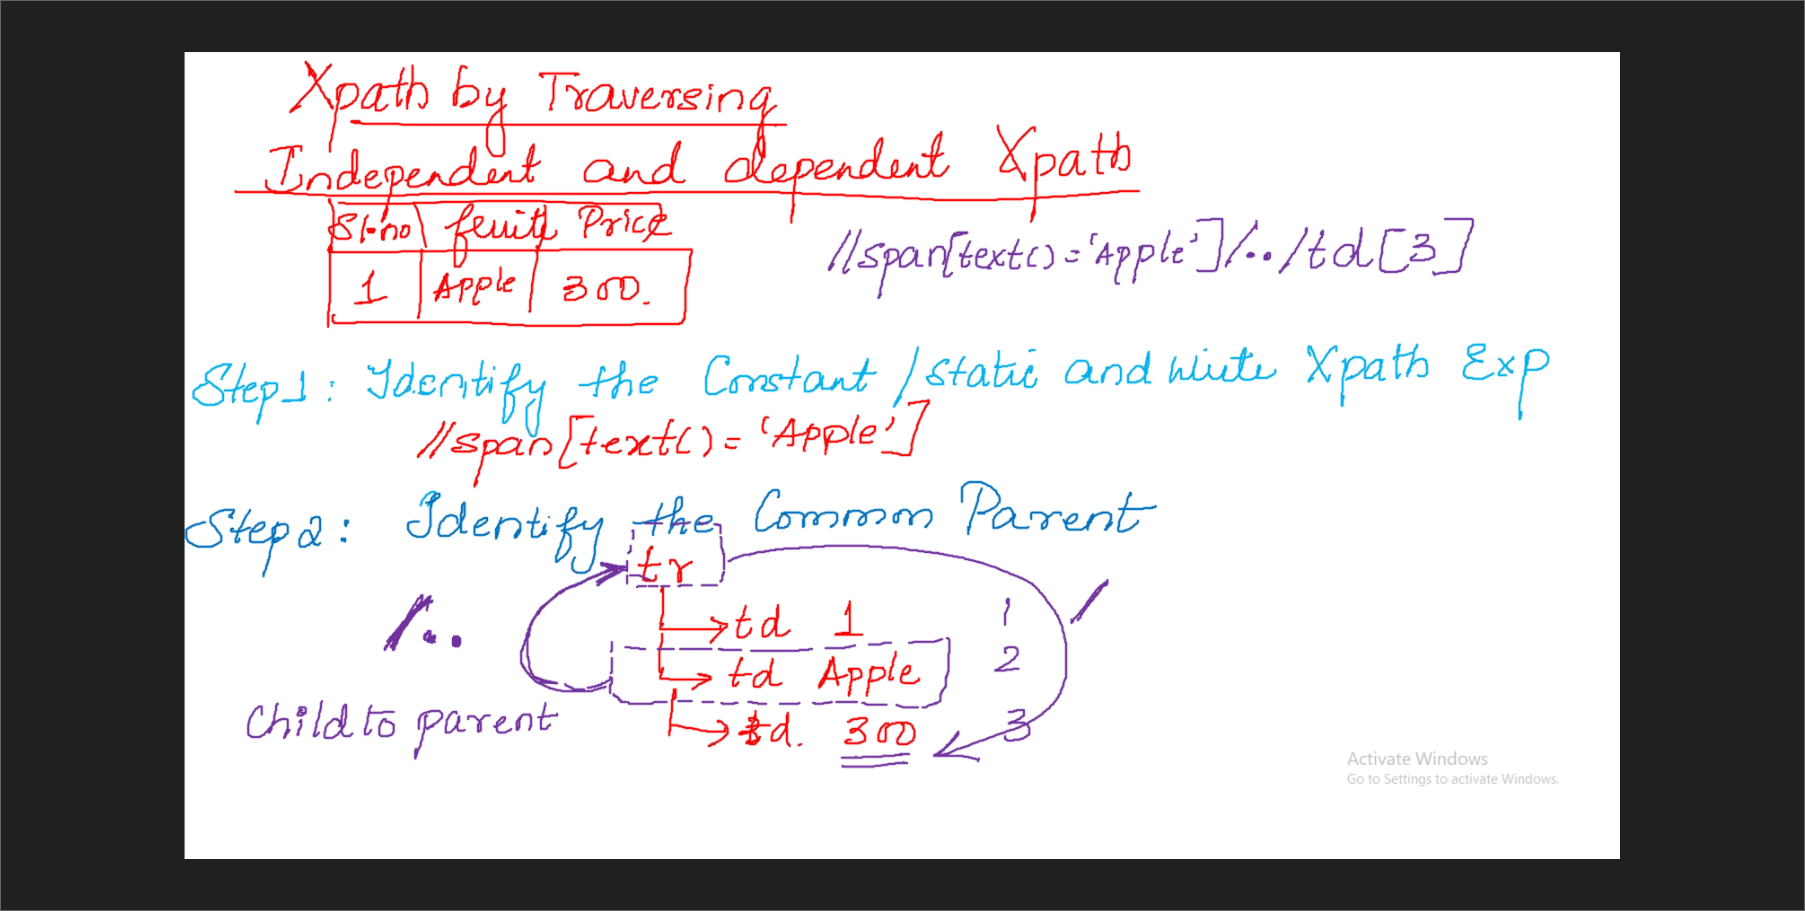 Xpath by Traversing
Independent and dependent Xpath
Sl.no fruit Price
1 Apple 300.
//span[text()='Apple']/../td[3]
Step 1: Identify the Constant /static and write Xpath Exp
//span[text()='Apple']
Step 2: Identify the Common Parent
tr
/..
td 1 1 /
td Apple 2
Child to parent
td. 300 3
Activate Windows
Go to Settings to activate Windows.